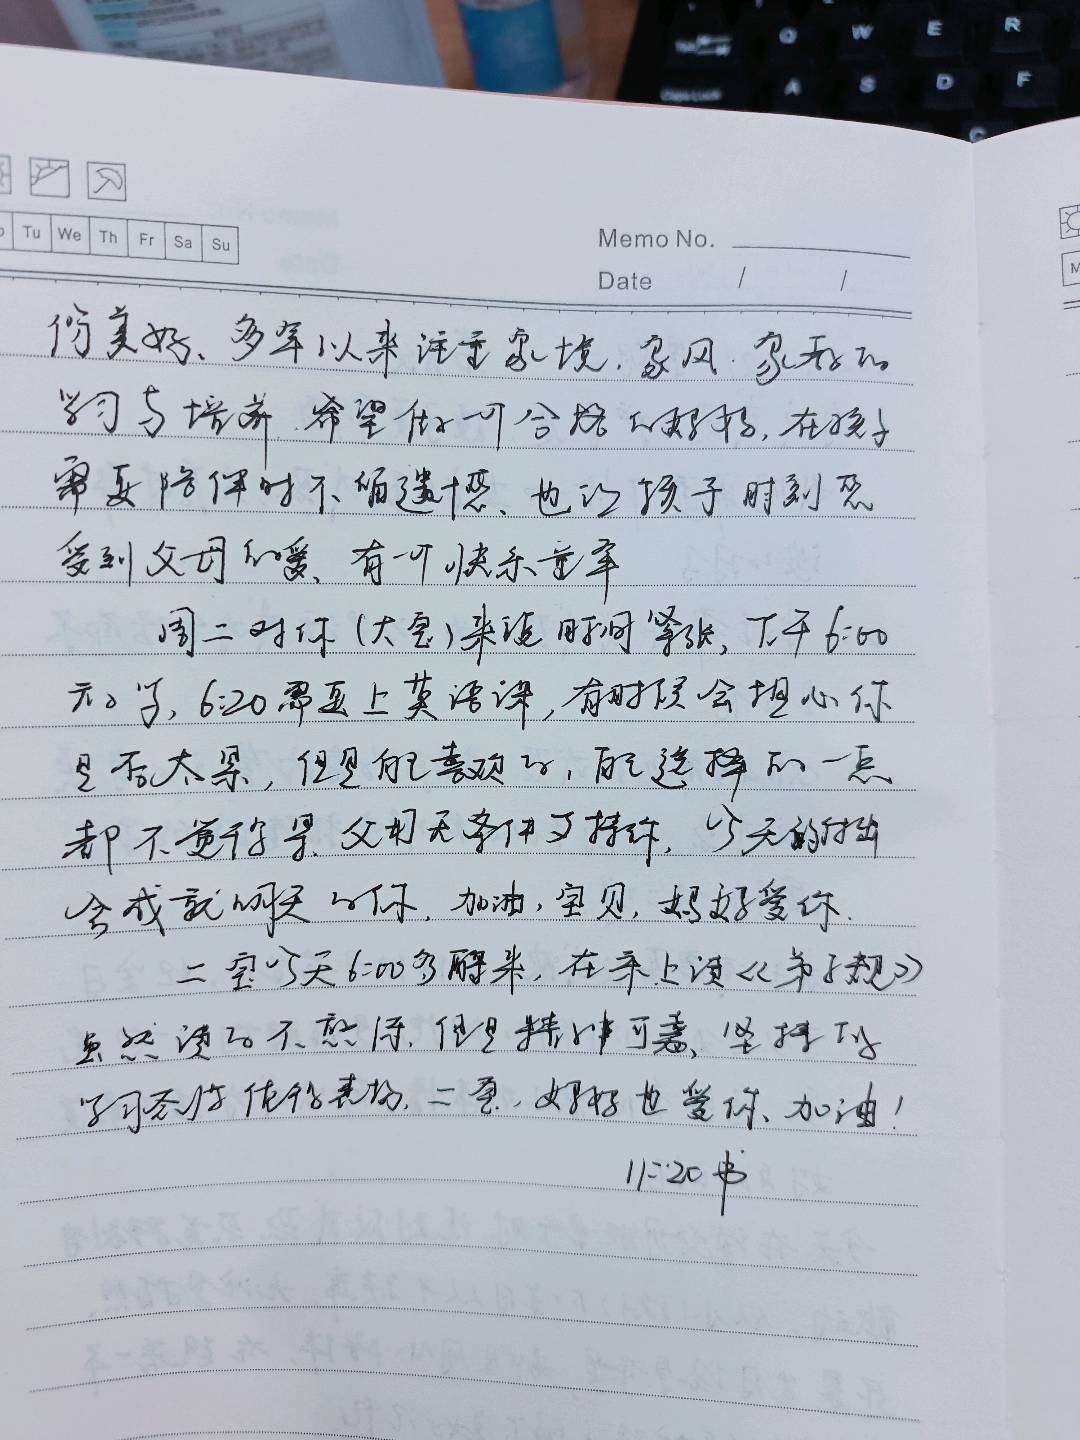 Q W E R
A S D F
Caps Lock
C
Tu We Th Fr Sa Su
Memo No.
Date / /
M
份美好、多年以来注重家境、家风、家教的
学习与培养、希望做一个合格的妈妈，在孩子
需要陪伴时不留遗憾、也让孩子时刻感
受到父母的爱、有一个快乐童年
周二对你(大宝)来说时间紧张，下午6:00
放学，6:20需要上英语课，有时候会担心你
是否太累，但是自己喜欢的，自己选择的一点
都不觉得累、父母无条件支持你，今天的付出
会成就明天的你，加油，宝贝，妈妈爱你.
二宝今天6:00多醒来，在车上读《弟子规》
虽然读的不熟悉，但是精神可嘉、坚持的
学习态度值得表扬，二宝，妈妈也爱你、加油！
11:20书